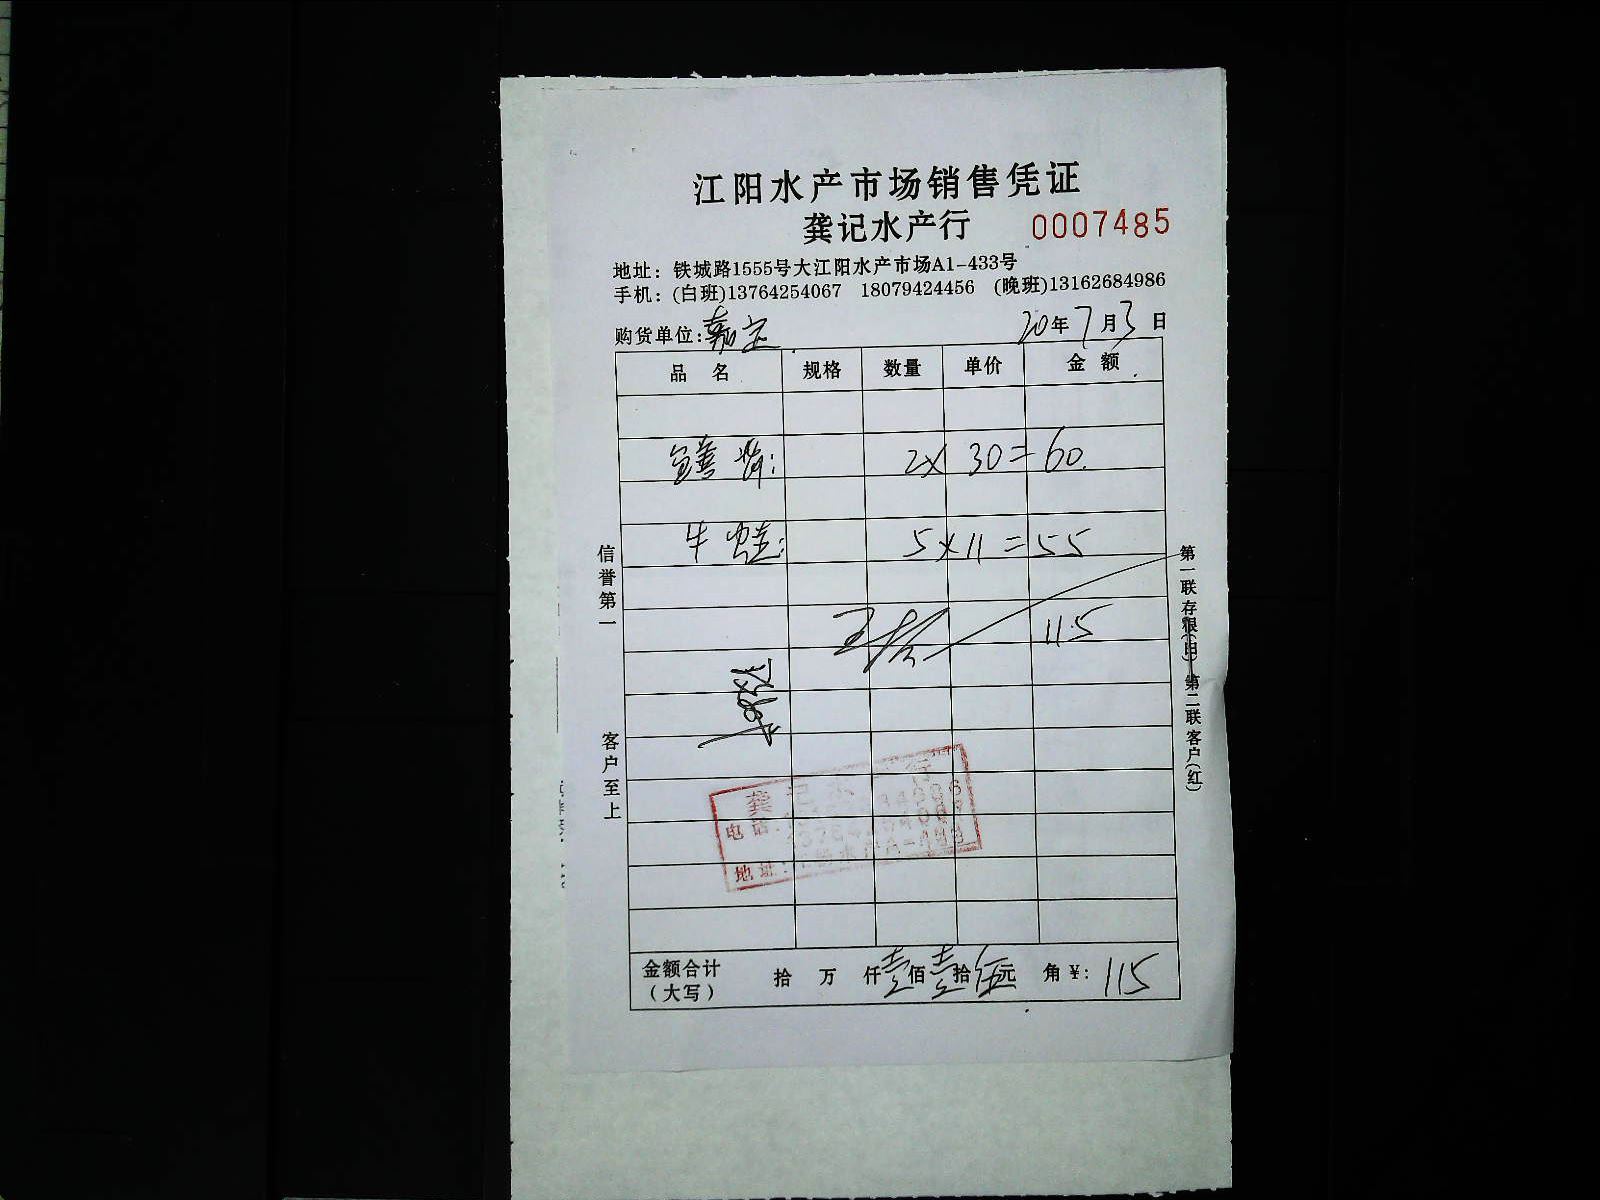 江阳水产市场销售凭证
龚记水产行 0007485
地址：铁城路1555号大江阳水产市场A1-433号
手机：(白班)13764254067 18079424456 (晚班)13162684986
购货单位:嘉定 20年7月3日
品 名 规格 数量 单价 金 额
鳝 2× 30= 60.
牛蛙: 5×11=55
115
信誉第一 客户至上
第一联存根(白) 第二联客户(红)
龚记水产行
电话:
地址:
金额合计(大写) 拾 万 仟壹佰壹拾伍元 角￥: 115